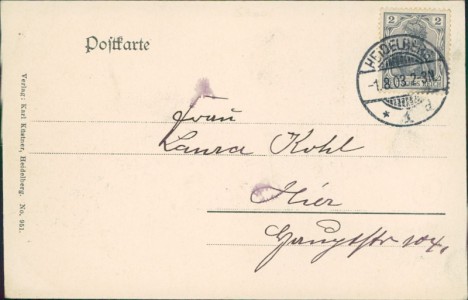 Postkarte
2 2
HEIDELBERG
-1.8.03.2-3N.
* 1
Frau
Laura Kohl
Hier
Hauptstr 104.
Verlag: Karl Küstner, Heidelberg. No. 951.